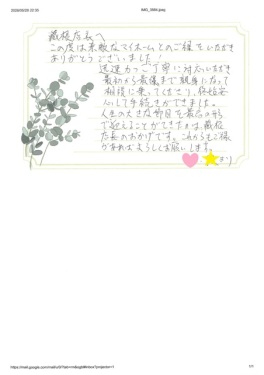 2024/06/08 22:30
IMG_3994.jpeg
店長へ
この度は素敵なマイホームとのご縁をいただき
ありがとうございました!
迅速かつ丁寧に対応いただき
最初から最後まで親身になって
相談に乗ってくださり、終始安
心して手続きができました。
人生の大きな節目を最高の形
で迎えることができたのは
店長のおかげです。これからもご縁
があればよろしくお願いします。
り
1/1